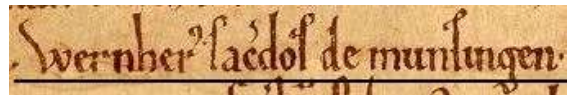 · Wernherꝰ ſac̄doſ de munſingen·